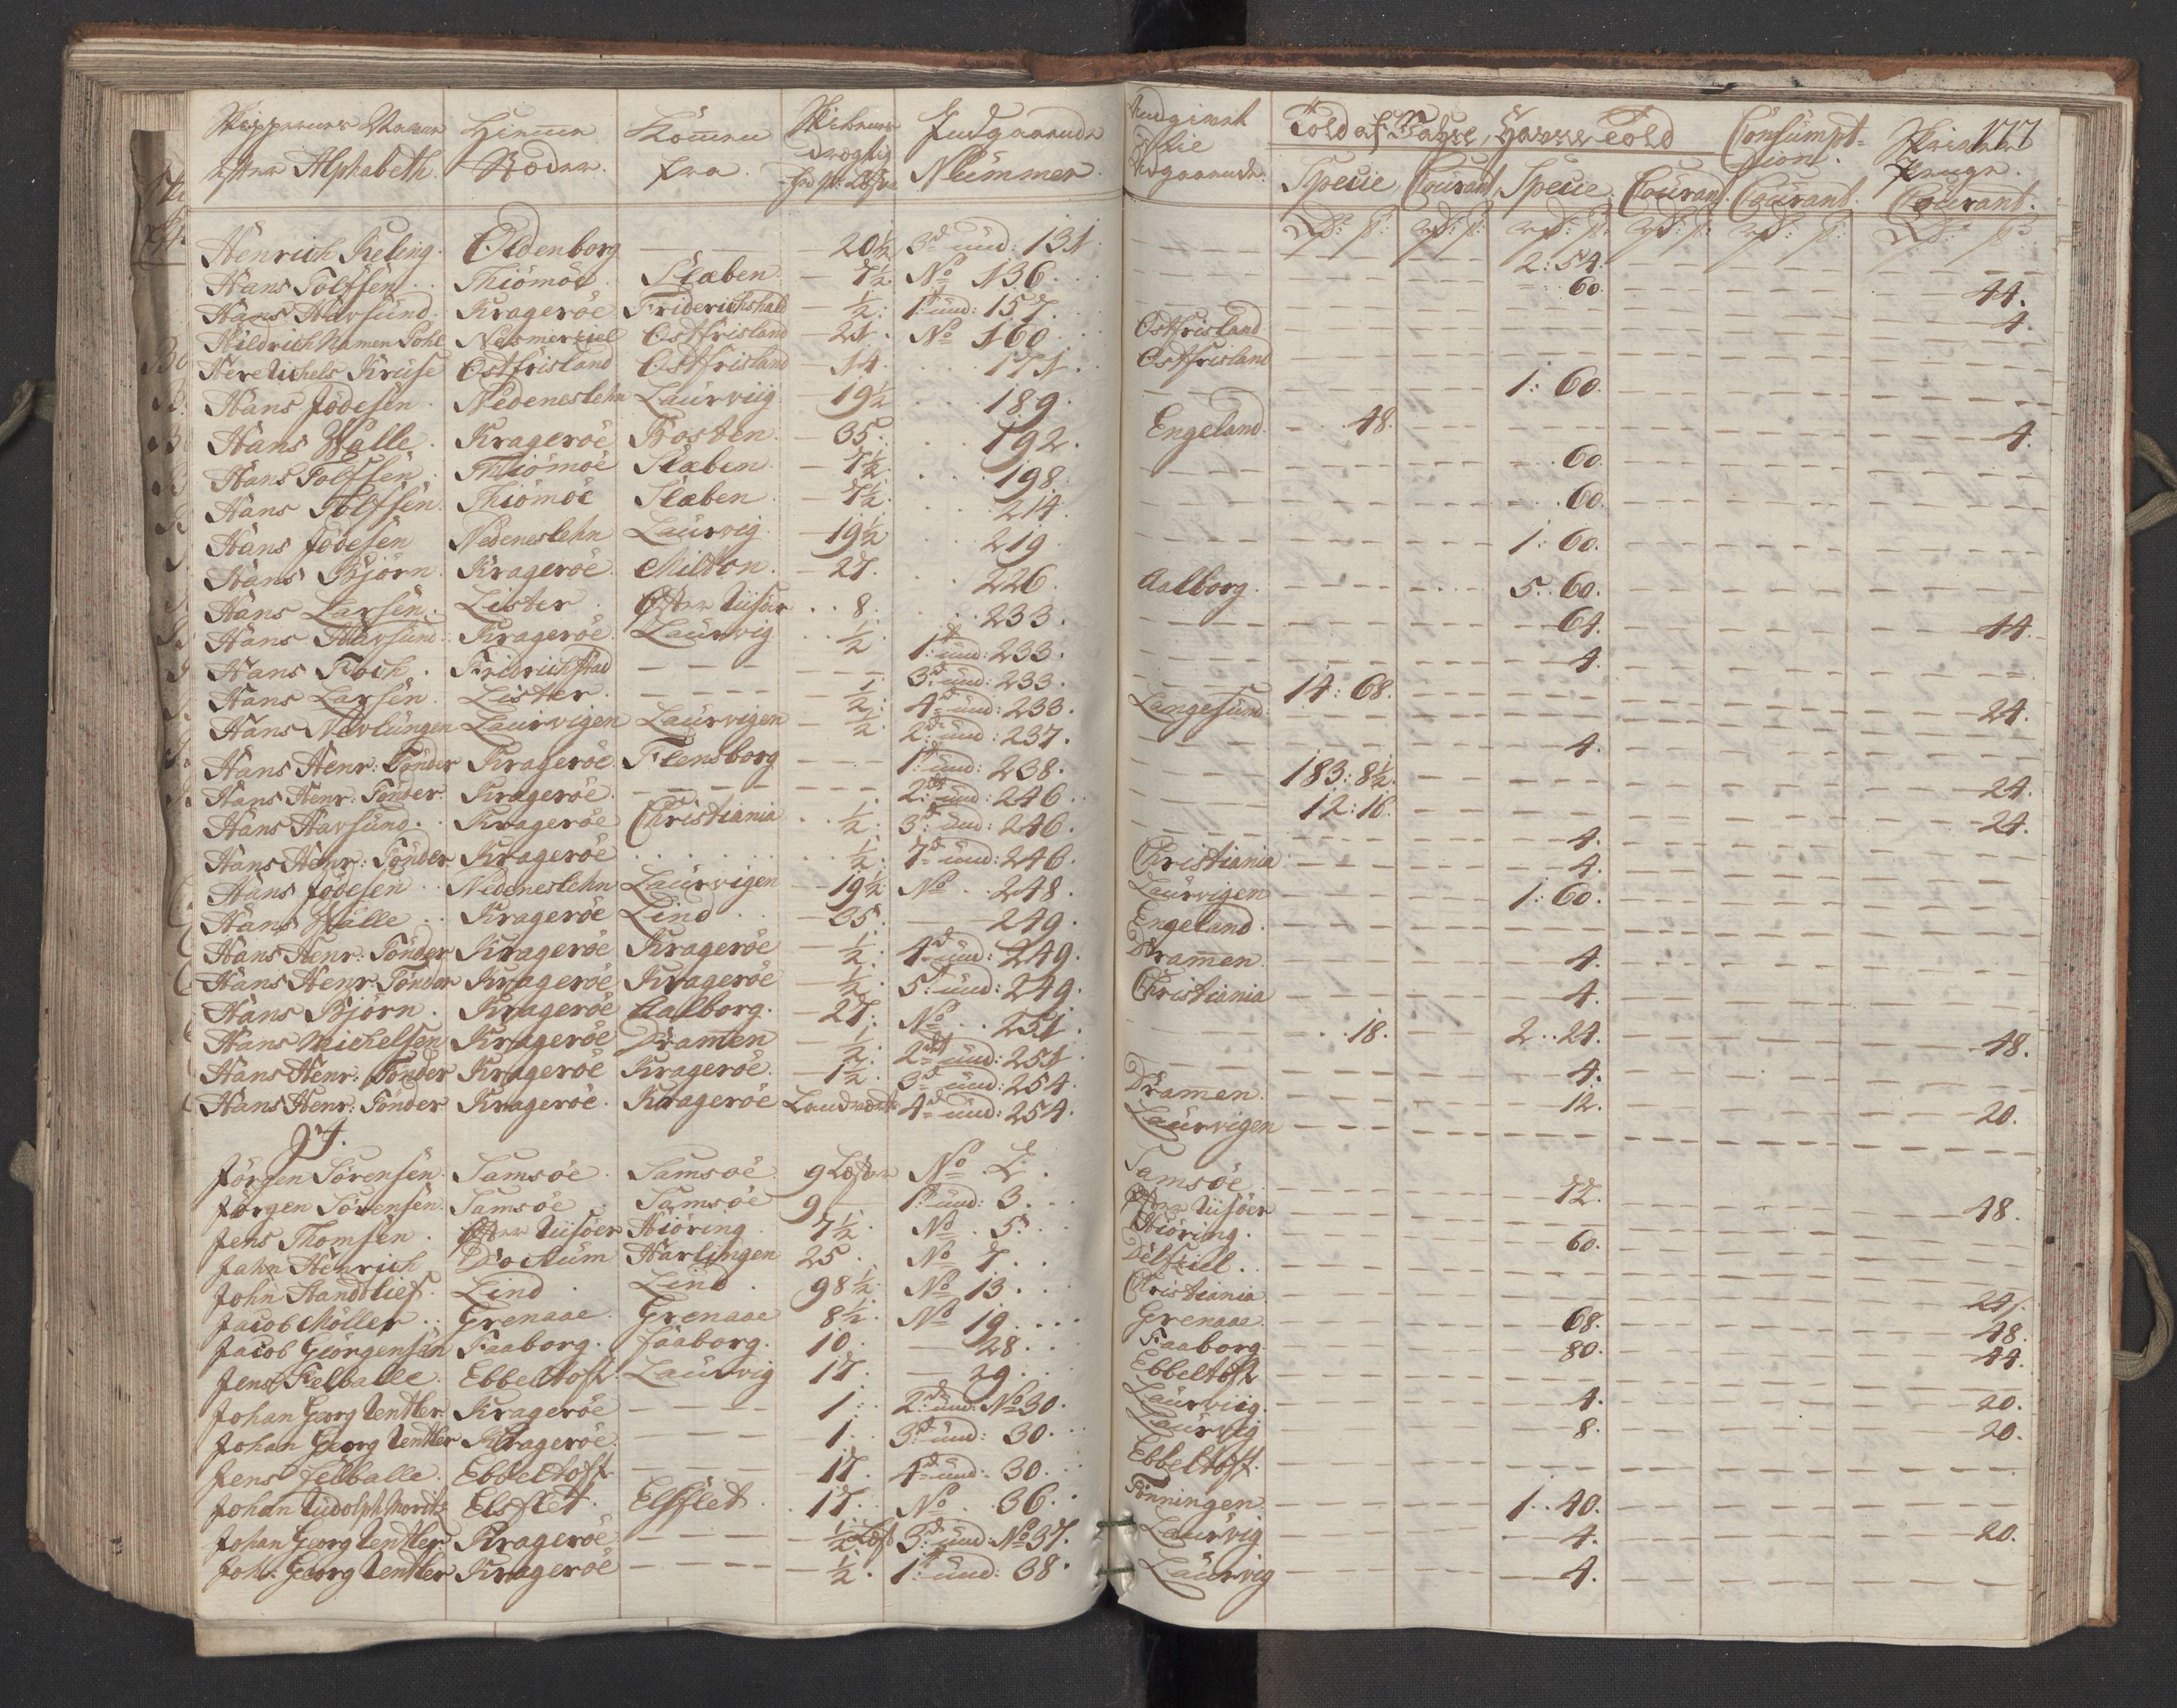 Skippernes Navne efter Alphabeth. | Hiemme Stæder. | Kommen fra. | Skibenes drægtig- hed pr: Læster | Indgaaende Nummer | Angivet til Udgaaende. | Told af Fahrt, Havre Told | Consumpt- tion. | Penge. | 177
Specie | Courant | Specie | Courant. | Courant. | Courant.
Rd: s: | rd: s: | rd: s: | rd: s: | rd: s: | Rd: s:
Henrich Keling. Oldenborg — 20½ 3d und: 131. — 2: 54.
Hans Tolfsen. Thiömöe. Slaben — 7½ No 136. — 60. — 44.
Hans Havsund. Krageröe Friderichshald — ½: 1t und: 157. — 4.
Hildrich Namen Pohl Nesmersiel Ostfrisland — 21. No 160. Ostfrisland
Kruse Ostfrisland Ostfrisland — 14. 171. Ostfrisland
Hans Jödesen. Nedeneslehn Laurviig — 19½ 189. — 1: 60.
Hans Walle. Krageröe Bosten. — 35. 192. Engeland. — 48. — 4.
Hans Tolfsen. Thiömöe Slaben — 7½. 198. — 60.
Hans Tolfsen. Thiömöe Slaben. — 7½. 214. — 60.
Hans Jödesen Nedeneslehn Laurvig. — 19½ 219. — 1: 60.
Hans Björn. Krageröe. Milton. — 27. 226. Aalborg. — 5.. 60.
Hans Larsen. Lister. Öster Riisöer .. 8. 233. — 64. — 44.
Hans Havsund. Krageröe Laurvig .. ½ 1t und: 233. — 4.
Hans Koch. Fridrichstad — — 3d und: 233. — 14: 68. — 24.
Hans Larsen. Lister. — ½: 4d und: 233. Langesund.
Hans Nevlungen Laurvigen Laurvigen — ½: 2d und: 237. — 4.
Hans Henr: Tönder Krageröe. Flensborg — 1t und: 238. — 183: 8½. — 24.
Hans Henr: Tönder. Krageröe. — — 2d und: 246. — 12: 16. — 24.
Hans Havsund. Krageröe Christiania .. ½: 3d und: 246. — 4.
Hans Henr: Tönder Krageröe ... ½: 7d und: 246. Christiania — 4.
Hans Jödesen. Nedeneslehn Laurvigen — 19½ No 248. Laurvigen — 1: 60.
Hans Walle. Krageröe Lind. — 35. — 249. Engeland.
Hans Henr: Tönder Krageröe Krageröe — ½: 4d und: 249. Dramen. — 4.
Hans Henr: Tönder Krageröe Krageröe — ½: 5t und: 249. Christiania — 4.
Hans Björn. Krageröe Aalborg. — 27. No 251. — 18. — 2.. 24. — 48.
Hans Michelsen Krageröe Dramen — ½: 2d und: 251. — 4.
Hans Henr: Tönder Krageröe Krageröe. — 1½. 3d und: 254. Dramen. — 12. — 20.
Hans Henr: Tönder Krageröe. Krageröe 4d und: 254. Laurvigen
J.
Jörgen Sörensen. Samsöe. Samsöe 9 Læster No 2. Samsöe.
Jörgen Sörensen. Samsöe. Samsöe 9 1t und: 3. Öster Riisöer — 72. — 48.
Jens Thomsen. Öster Riisöer Hiöring. 7½. No 5. Hiöring.
Jahn Henrich Dockum Harlingen 25. No 7. Delfziel. — 60.
John Standtlief. Lind. Lind. 98½. No 13. Christiania. — 24.
Jacob Möller. Grenaae. Grenaae 8½. No 19. Grenaae. — 68. — 48.
Jacob Geörgensen Faaborg. Faaborg. 10. — 28. Faaborg. — 80. — 44.
Jens Felballe. Ebbeltoft. Laurvig 17. — 29. Ebbeltoft
Johan Georg Rentler. Krageröe — 1. 2d und: No 30. Laurviig. — 4. — 20.
Johan Georg Rentler Krageröe. — 1. 3d und: 30. Laurvig — 8. — 20.
Jens Felballe. Ebbeltoft. — 17. 4d und: 30. Ebbeltoft.
Johan Rudolph Moritz Elsflet. Elsflet. 17. No 36. Tönningen. — 1.. 40.
Johan Georg Rentler. Krageröe. — ½ Læst 3d und: No 37. Laurvig — 4. — 20.
Joh: Georg Rentler Krageröe — ½. 1t und: 38. Laurvig — 4.